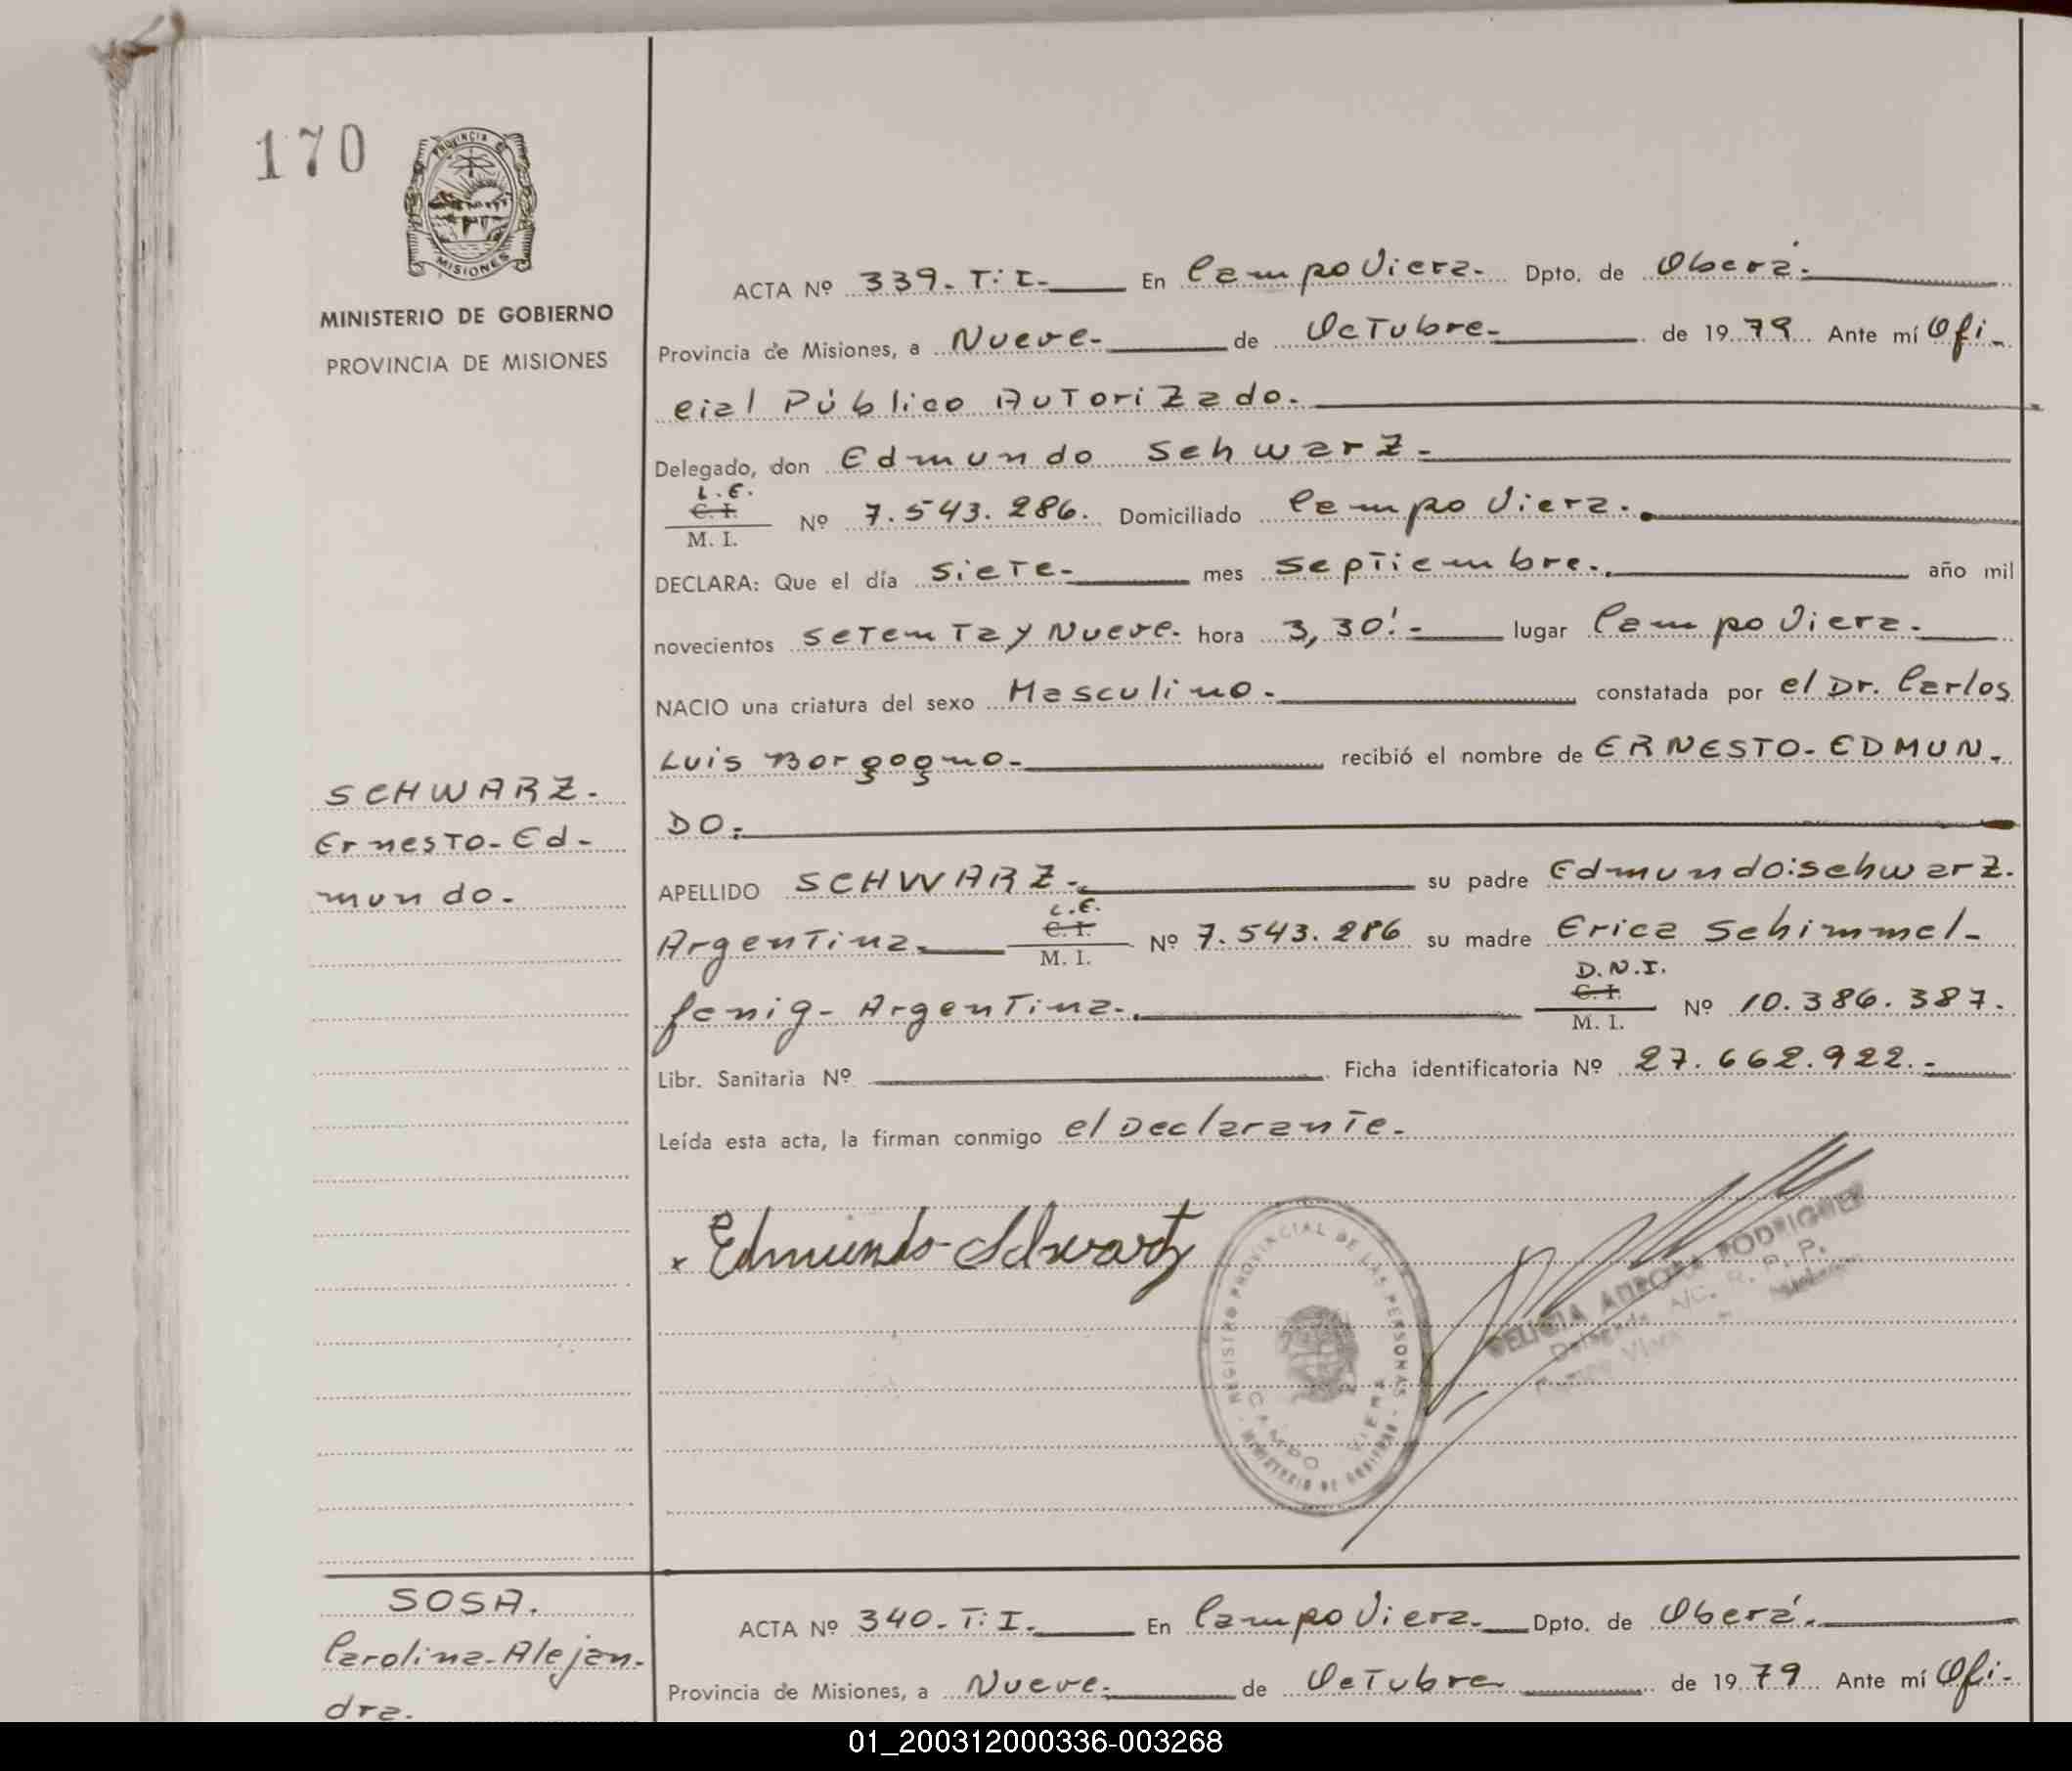 170
PROVINCIA DE
MISIONES
MINISTERIO DE GOBIERNO
PROVINCIA DE MISIONES
ACTA Nº 339. T: I. En Campo Viera. Dpto. de Oberá.
Provincia de Misiones, a Nueve. de Octubre. de 19 79 Ante mí Ofi-
cial Público Autorizado.
Delegado, don Edmundo Schwarz.
L.E.
C. I.
M. I. Nº 7.543.286. Domiciliado Campo Viera.
DECLARA: Que el día siete. mes septiembre. año mil
novecientos setenta y Nueve. hora 3,30'. lugar Campo Viera.
NACIO una criatura del sexo Masculino. constatada por el Dr. Carlos
Luis Borgogno. recibió el nombre de ERNESTO-EDMUN-
DO.
SCHWARZ.
Ernesto-Ed-
mundo.
APELLIDO SCHWARZ. su padre Edmundo:schwarz.
Argentina. L.E. C. I. M. I. Nº 7.543.286 su madre Erica Schimmel-
fenig- Argentina. D.N.I. C. I. M. I. Nº 10.386.387.
Libr. Sanitaria Nº Ficha identificatoria Nº 27.662.922.
Leída esta acta, la firman conmigo el Declarante.
x Edmundo Schwartz
REGISTRO PROVINCIAL DE LAS PERSONAS
CAMPO VIERA
MINISTERIO DE GOBIERNO
DELICIA AURORA RODRIGUEZ
Delegada A/C. R. P. P.
Campo Viera
SOSA.
Carolina-Alejan-
dra.
ACTA Nº 340. T: I. En Campo Viera. Dpto. de Oberá.
Provincia de Misiones, a Nueve. de Octubre de 19 79 Ante mí Ofi-
01_200312000336-003268